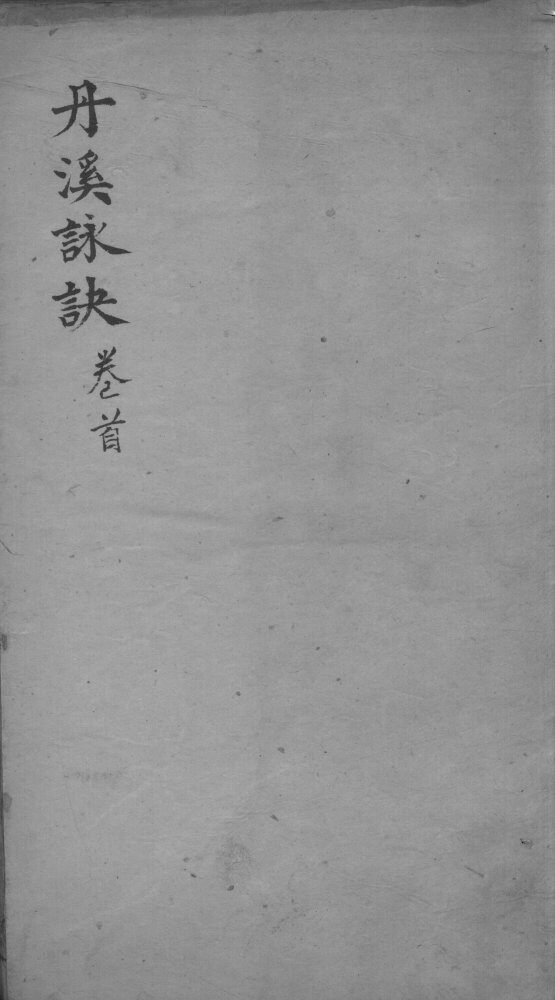 丹溪詠訣
卷首